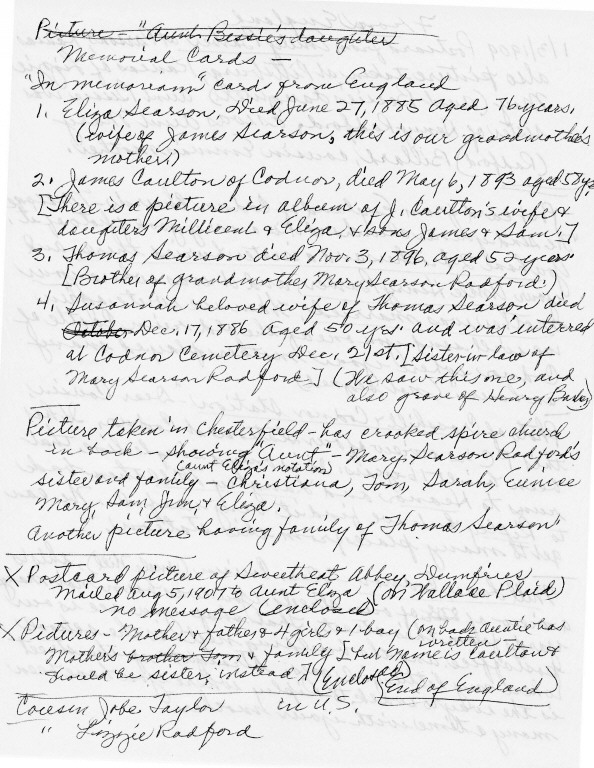 Picture - "Aunt Bessie's daughter
Memorial Cards -
"In memoriam" cards from England
1. Eliza Searson, Died June 27, 1885 aged 76 years.
(wife of James Searson, this is our grandmother's
mother.)
2. James Caulton of Codnor, died May 6, 1893 aged 58 yrs
[There is a picture in album of J. Caulton's wife &
daughters Millicent & Eliza & sons James & Sam.]
3. Thomas Searson died Nov. 3, 1896, aged 52 years
[Brother of grandmother Mary Searson Radford.)
4. Susannah beloved wife of Thomas Searson died
October Dec. 17, 1886 aged 50 yrs. and was interred
at Codnor Cemetery Dec. 21st. [Sister-in-law of
Mary Searson Radford.] (We saw this one, and
also grave of Henry
Picture taken in Chesterfield - has crooked spire church
in back - showing "Aunt" - Mary Searson Radford's
(Aunt Eliza's notation)
sister and family - Christiana, Tom, Sarah, Eunice
Mary, Sam, Jim & Eliza.
Another picture having family of Thomas Searson
X Postcard picture of Sweetheat Abbey, Dumfries
Mailed Aug 5, 1907 to Aunt Eliza (on Wallace Plaid)
no message (enclosed)
X Pictures - Mother & father & 4 girls & 1 boy (on back Auntie has
written -
Mother's brother Tom & family [but name is Caulton &
should be sister, instead] (Enclosed) (End of England)
Cousin Jobe Taylor in U.S.
" Lizzie Radford